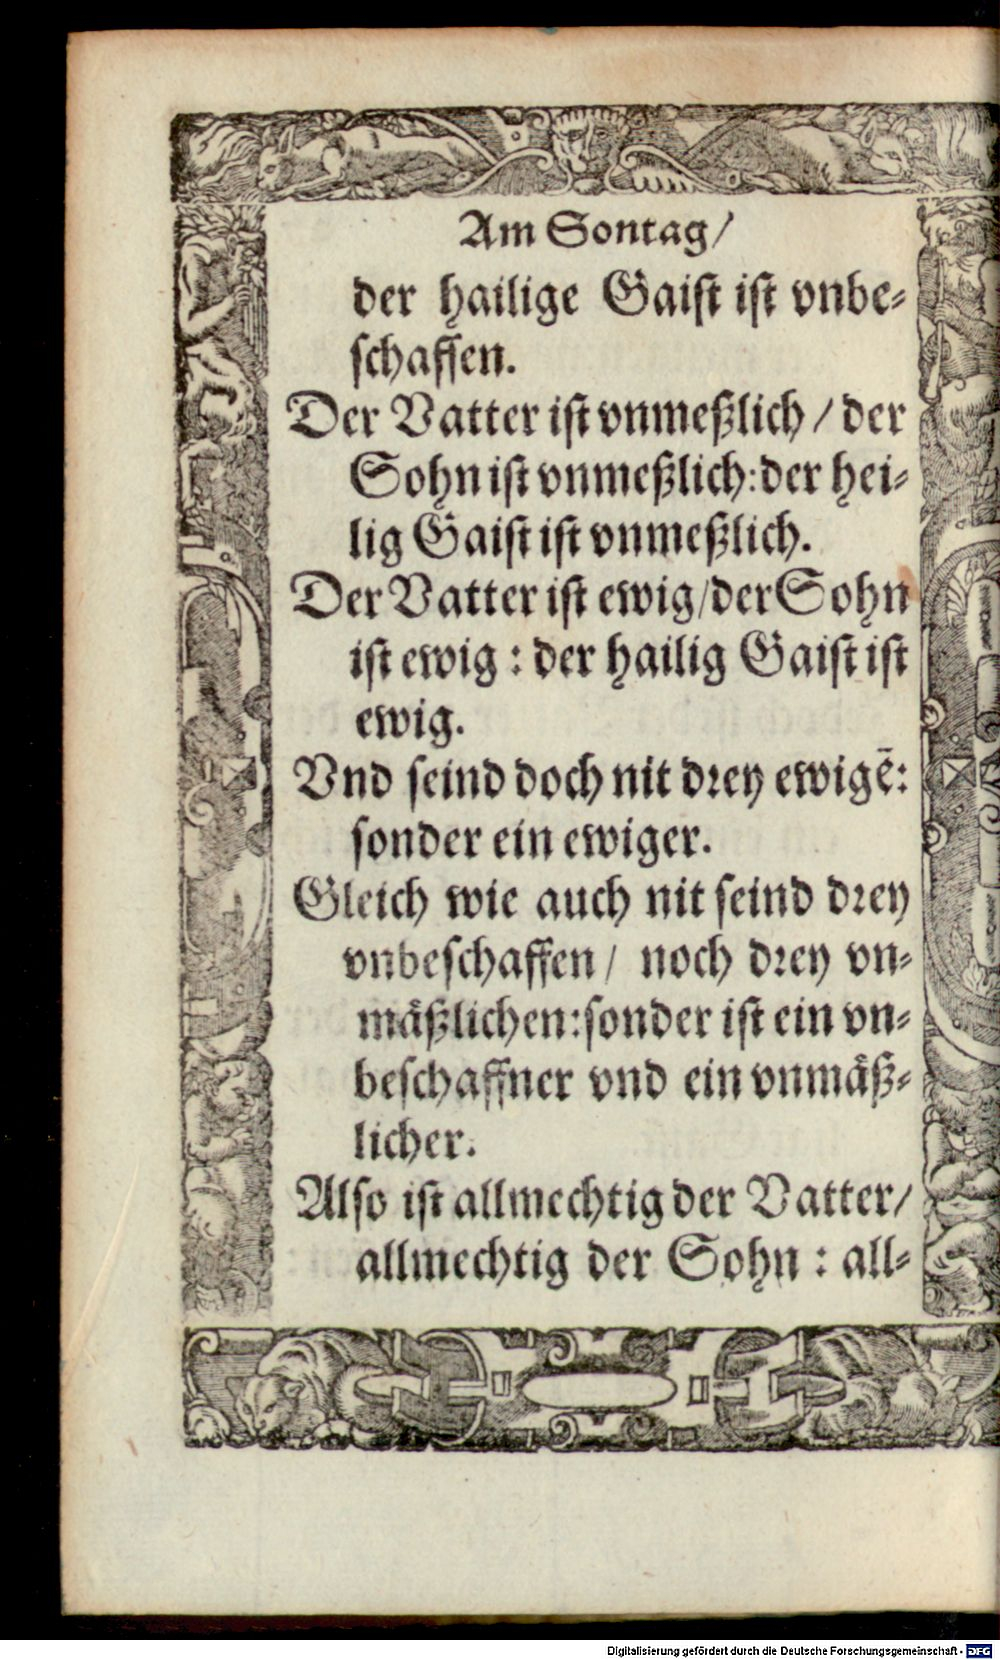 Am Sontag/
der hailige Gaist ist vnbe⸗
schaffen.
Der Vatter ist vnmeßlich / der
Sohn ist vnmeßlich: der hei⸗
lig Gaist ist vnmeßlich.
Der Vatter ist ewig/der Sohn
ist ewig : der hailig Gaist ist
ewig.
Vnd seind doch nit drey ewigẽ:
sonder ein ewiger.
Gleich wie auch nit seind drey
vnbeschaffen / noch drey vn⸗
mäßlichen: sonder ist ein vn⸗
beschaffner vnd ein vnmäß⸗
licher.
Also ist allmechtig der Vatter/
allmechtig der Sohn : all⸗
Digitalisierung gefördert durch die Deutsche Forschungsgemeinschaft - DFG